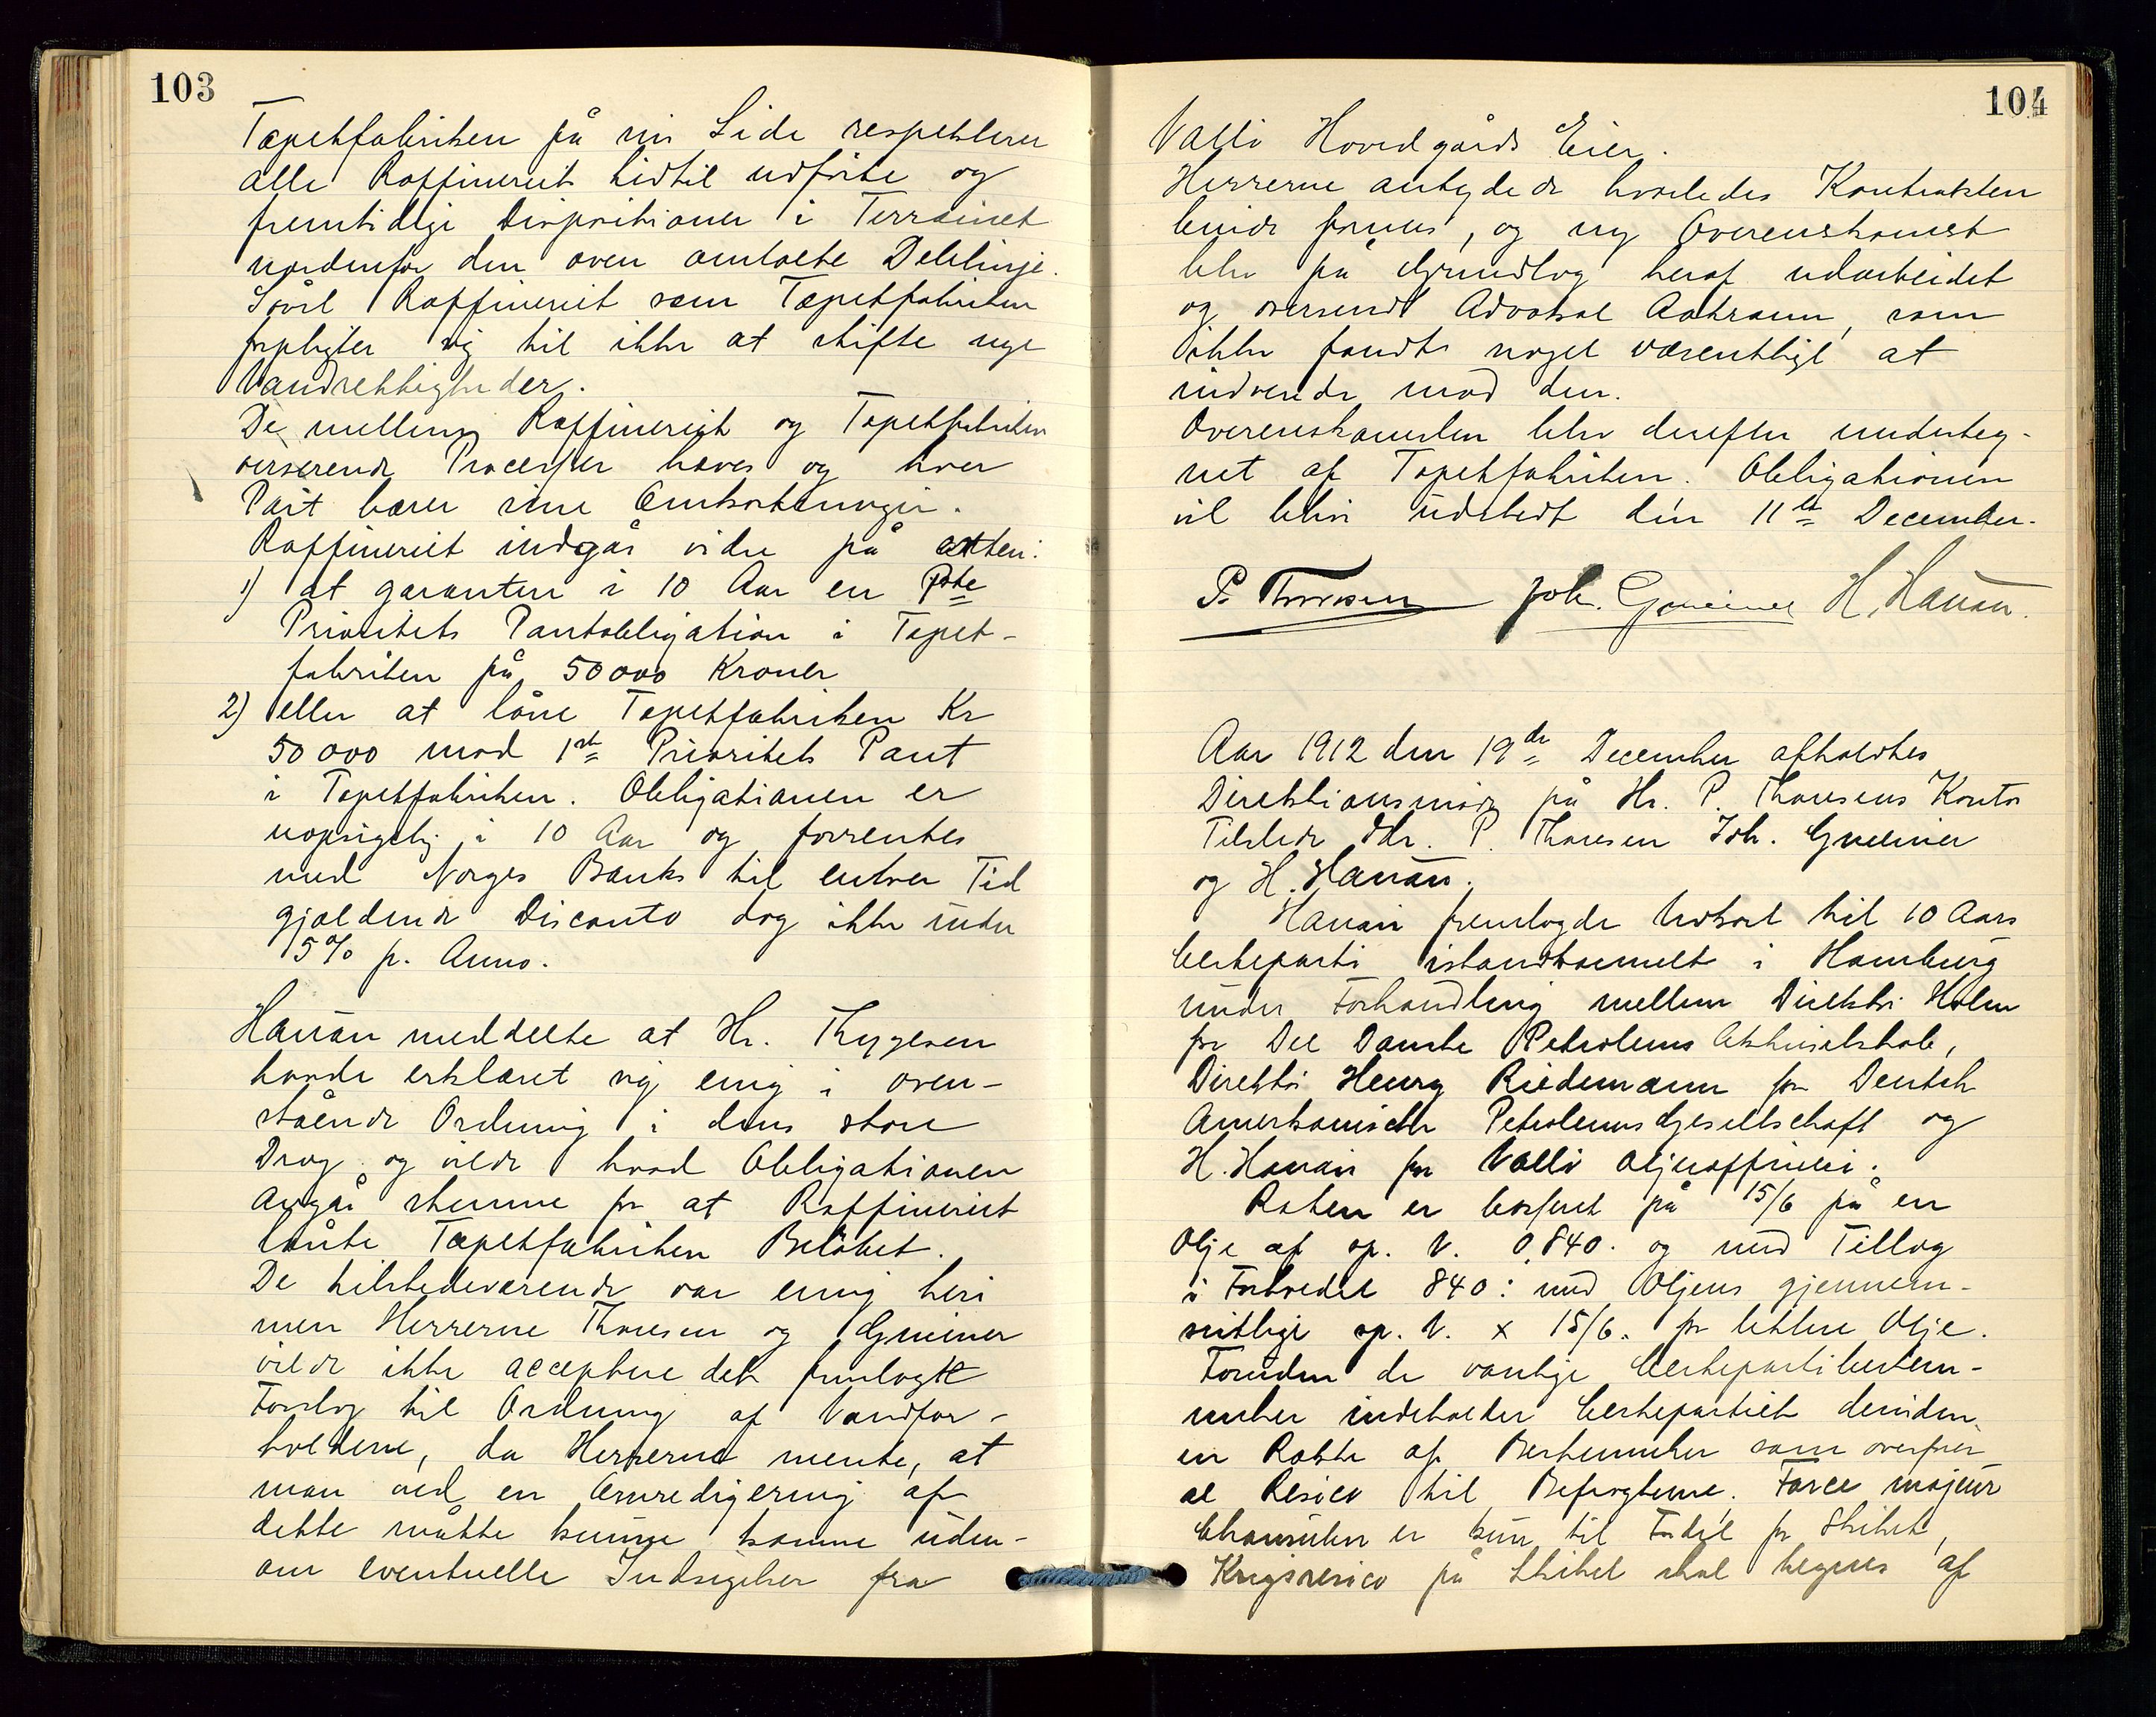 103
Tapetfabriken på sin Side respekterer
alle Raffineriets hidtil udførte og
fremtidige Dispositioner i Terrainet
nordenfor den oven omtalte Delelinje.
Såvel Raffineriet som Tapetfabriken
forpligter sig til ikke at stifte nye
Vandrettigheder.
De mellem Raffineriet og Tapetfabriken
verserende Processer hæves og hver
Part bærer sine Omkostninger.
Raffineriet indgår videre på enten:
1) at garantere i 10 Aar en 1ste
Prioritets Pantobligation i Tapet-
fabriken på 50000 Kroner
2) eller at låne Tapetfabriken Kr
50000 mod 1ste Prioritets Pant
i Tapetfabriken. Obligationen er
uopsigelig i 10 Aar og forrentes
med Norges Banks til enhver Tid
gjældende Disconto dog ikke under
5% p. Anno.
Hauan meddelte at Hr. Thygesen
havde erklæret sig enig i oven-
stående Ordning i dens store
Drag og vilde hvad Obligationen
angår stemme for at Raffineriet
lånte Tapetfabriken Beløbet.
De tilstedeværende var enig heri
men Herrerne Thoresen og Greiner
vilde ikke acceptere det fremlagte
Forslag til Ordning af Vandfor-
holdene, da Herrerne mente, at
man ved en Omredigering af
dette måtte kunne komme uden-
om eventuelle Indsigelser fra
104
Vallø Hovedgårds Eier.
Herrerne antydede hvorledes Kontrakten
burde formes, og ny Overenskomst
blev på Grundlag heraf udarbeidet
og oversendt Advokat Aakrann, som
ikke fandt noget væsentligt at
indvende mod den.
Overenskomsten blev derefter underteg-
net af Tapetfabriken. Obligationen
vil blive udstedt den 11te December.
P. Thoresen Joh. Greiner H. Hauan.
Aar 1912 den 19de December afholdtes
Direktionsmøde på Hr. P. Thoresens Kontor
Tilstede Hr. P. Thoresen Joh. Greiner
og H. Hauan.
Hauan fremlagde Udkast til 10 Aars
Certeparti istandkommet i Hamburg
under Forhandling mellem Direktør Holm
for Det Danske Petroleums Aktieselskab,
Direktør Henry Riedemann for Deutsch
Amerkanische Petroleums Gesellschaft og
H. Hauan for Vallø Oljeraffineri.
Raten er basert på 15/6 på en
Olje af sp. V. 0,840. og med Tillæg
i Forholdet 840: med Oljens gjennem-
snitlige sp. V. x 15/6. for lettere Olje.
Foruden de vanlige Certepartibestem-
melser indeholder Certepartiet desuden
en Række af Bestemmelser som overfører
al Risico til Befragterne. Force majeur
Clausulen er kun til Fordel for Skibet,
Krigsrisico på Skibet skal tegnes af